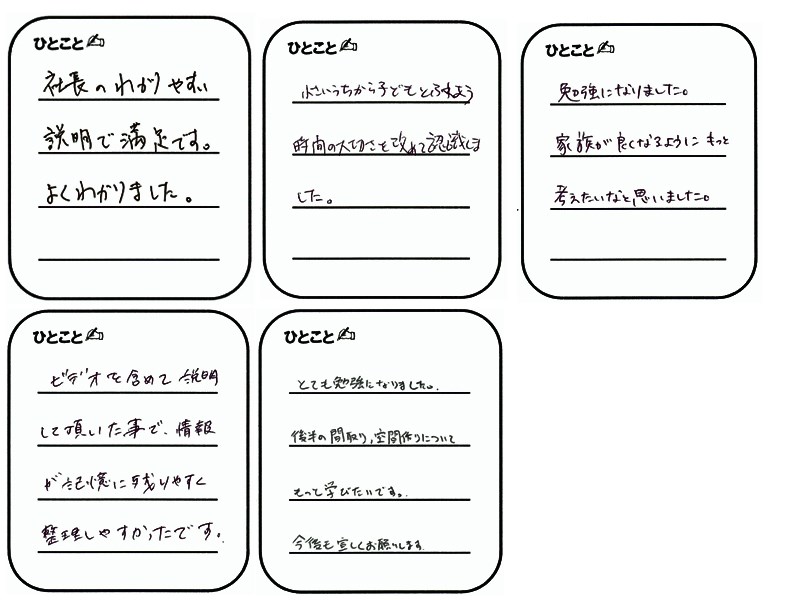 ひとこと
社長のわかりやすい
説明で満足です。
よくわかりました。
ひとこと
小さいうちから子どもとふれよう
時間の大切さを改めて認識しま
した。
ひとこと
勉強になりました。
家族が良くなるように もっと
考えたいなと思いました。
ひとこと
ビデオを含めて説明
して頂いた事で、情報
が記憶に残りやすく
整理しやすかったです。
ひとこと
とても勉強になりました。
後半の間取り,空間作りについて
もっと学びたいです。
今後も宜しくお願いします